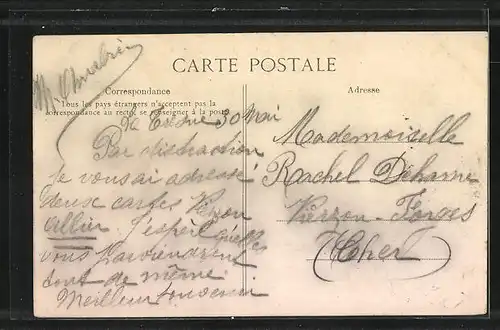 CARTE POSTALE
Correspondance
Tous les pays étrangers n'acceptent pas la
correspondance au recto, se renseigner à la poste
Adresse
30 Mai
Par distraction
je vous ai adressé
deux cartes
Allier J'espère qu'elles
vous parviendront
tout de même.
Meilleur souvenir
Mademoiselle
Rachel Dehame
Vierzon-Forges
(Cher)